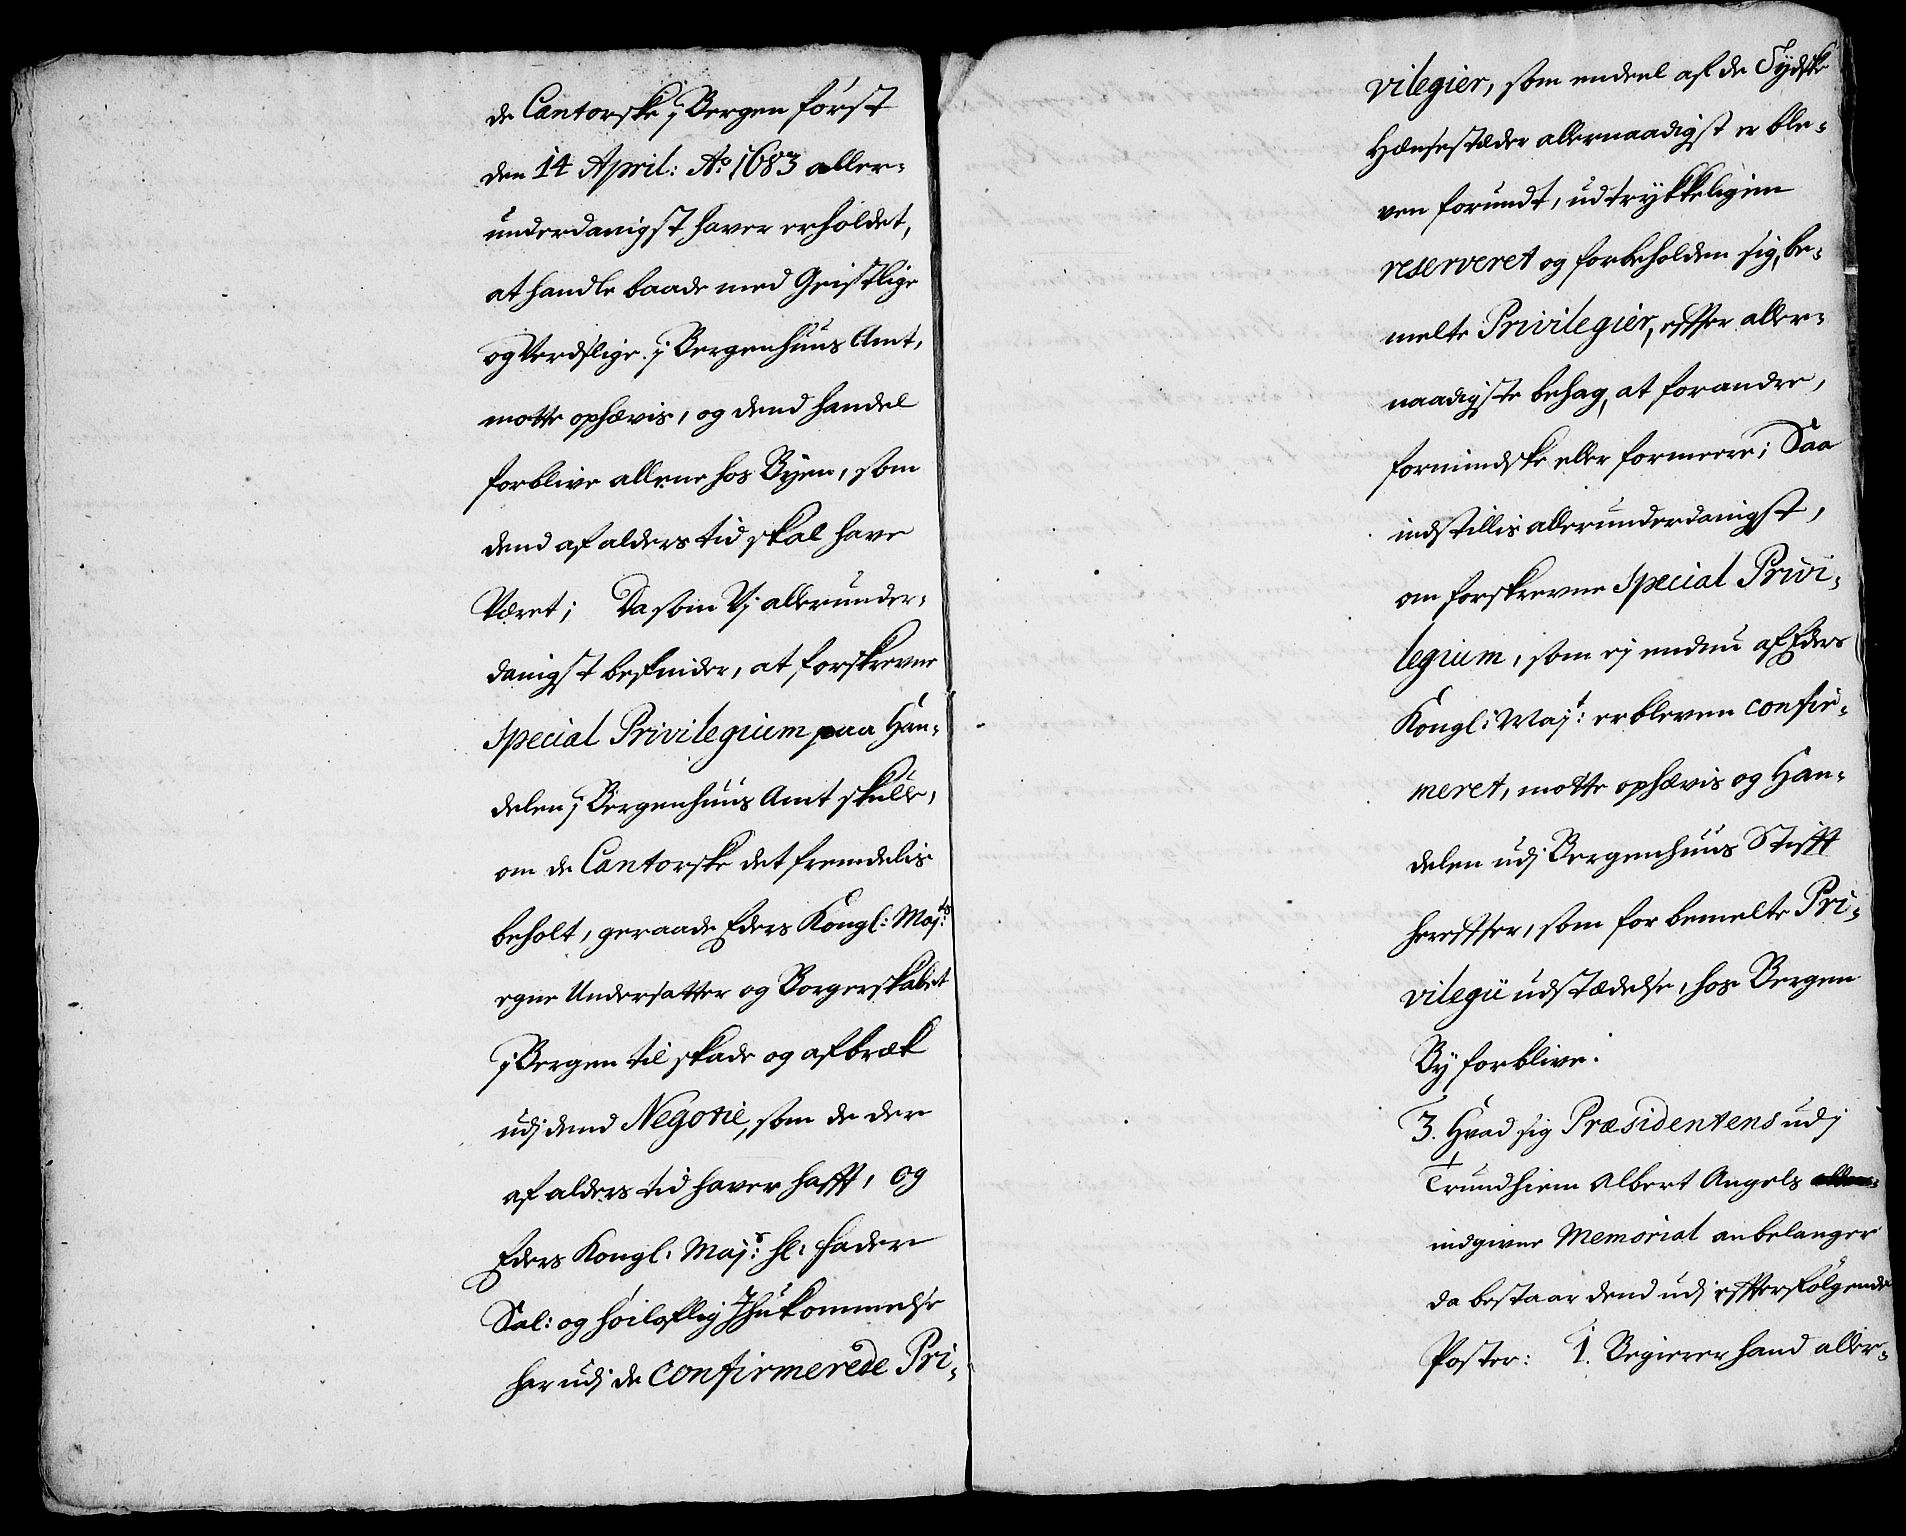 de Cantorske j Bergen først
den 14 April: Ao 1683 aller-
underdanigst haver erholdet,
at handle baade med Geistlige
og Verdslige j Bergenhuus Amt,
motte ophævis, og dend handel
forblive allene hos Byen, som
dend af alders tid skal have
Været; Da som Vj allerunder-
danigst befinder, at forskrevne
Special Privilegium paa Han-
delen j Bergenhuus Amt skulle,
om de Cantorske det fremdelis
beholt, geraade Eders Kongl: Majts:
egne Undersatter og Borgerskabet
j Bergen til skade og afbræk
udj dend Negotie, som de der
af alders tid haver hafft, og
Eders Kongl: Majs: hl: fader
Sal: og høiloflig Jhukommelse
har udj de confirmerede Pri-
vilegier, som endeel af de Tydske
Hænsestæder allernaadigst er ble-
ven forundt, udtrykkeligen
reserveret og forbeholden sig, be-
melte Privilegier, effter aller-
naadigste behag, at forandre,
formindske eller formeere; Saa
indstillis allerunderdanigst,
om forskrevne Special Privi-
legium, som ej endnu af Eders
Kongl: Majt: er bleven confir-
meret, motte ophævis og Han-
delen udj Bergenhuus Stifft
hereffter, som for bemelte Pri-
vilegii udstædelse, hos Bergen
By forblive.
3. Hvad sig Præsidentens udj
Trundhiem Albert Angels
indgivne Memorial anbelanger
da bestaar dend udj effterfølgende
Poster: 1. Begierer hand aller-